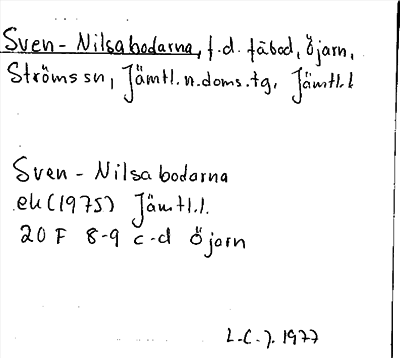 Sven-Nilsabodarna, f.d. fäbod, Öjarn,
Ströms sn, Jämtl.n.doms.tg, Jämtl.l
Sven-Nilsabodarna
ek(1975) Jämtl.l.
20 F 8-9 c-d Öjarn
L.C.J. 1977